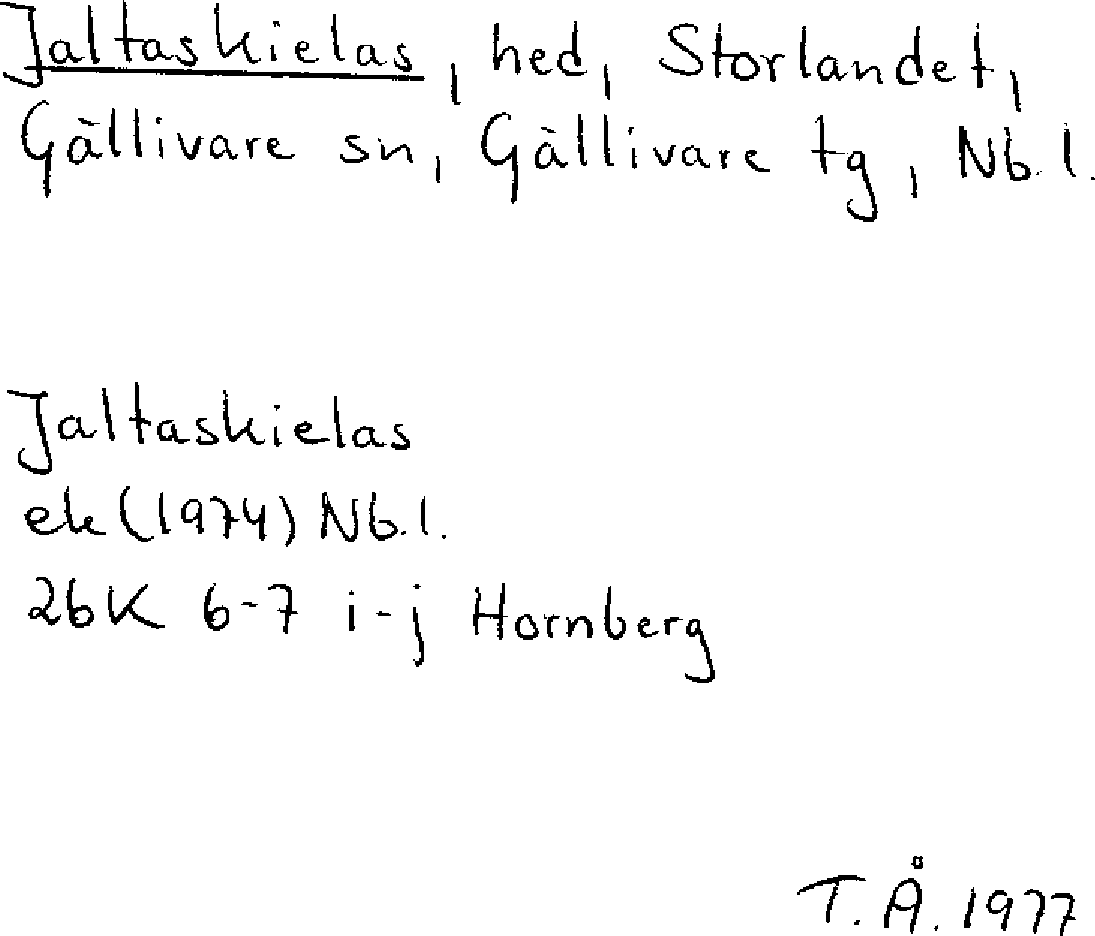 Jaltaskielas, hed, Storlandet,
Gällivare sn, Gällivare tg, Nb.l.
Jaltaskielas
ek (1974) Nb.l.
26K 6-7 i-j Hornberg
T.Å. 1977